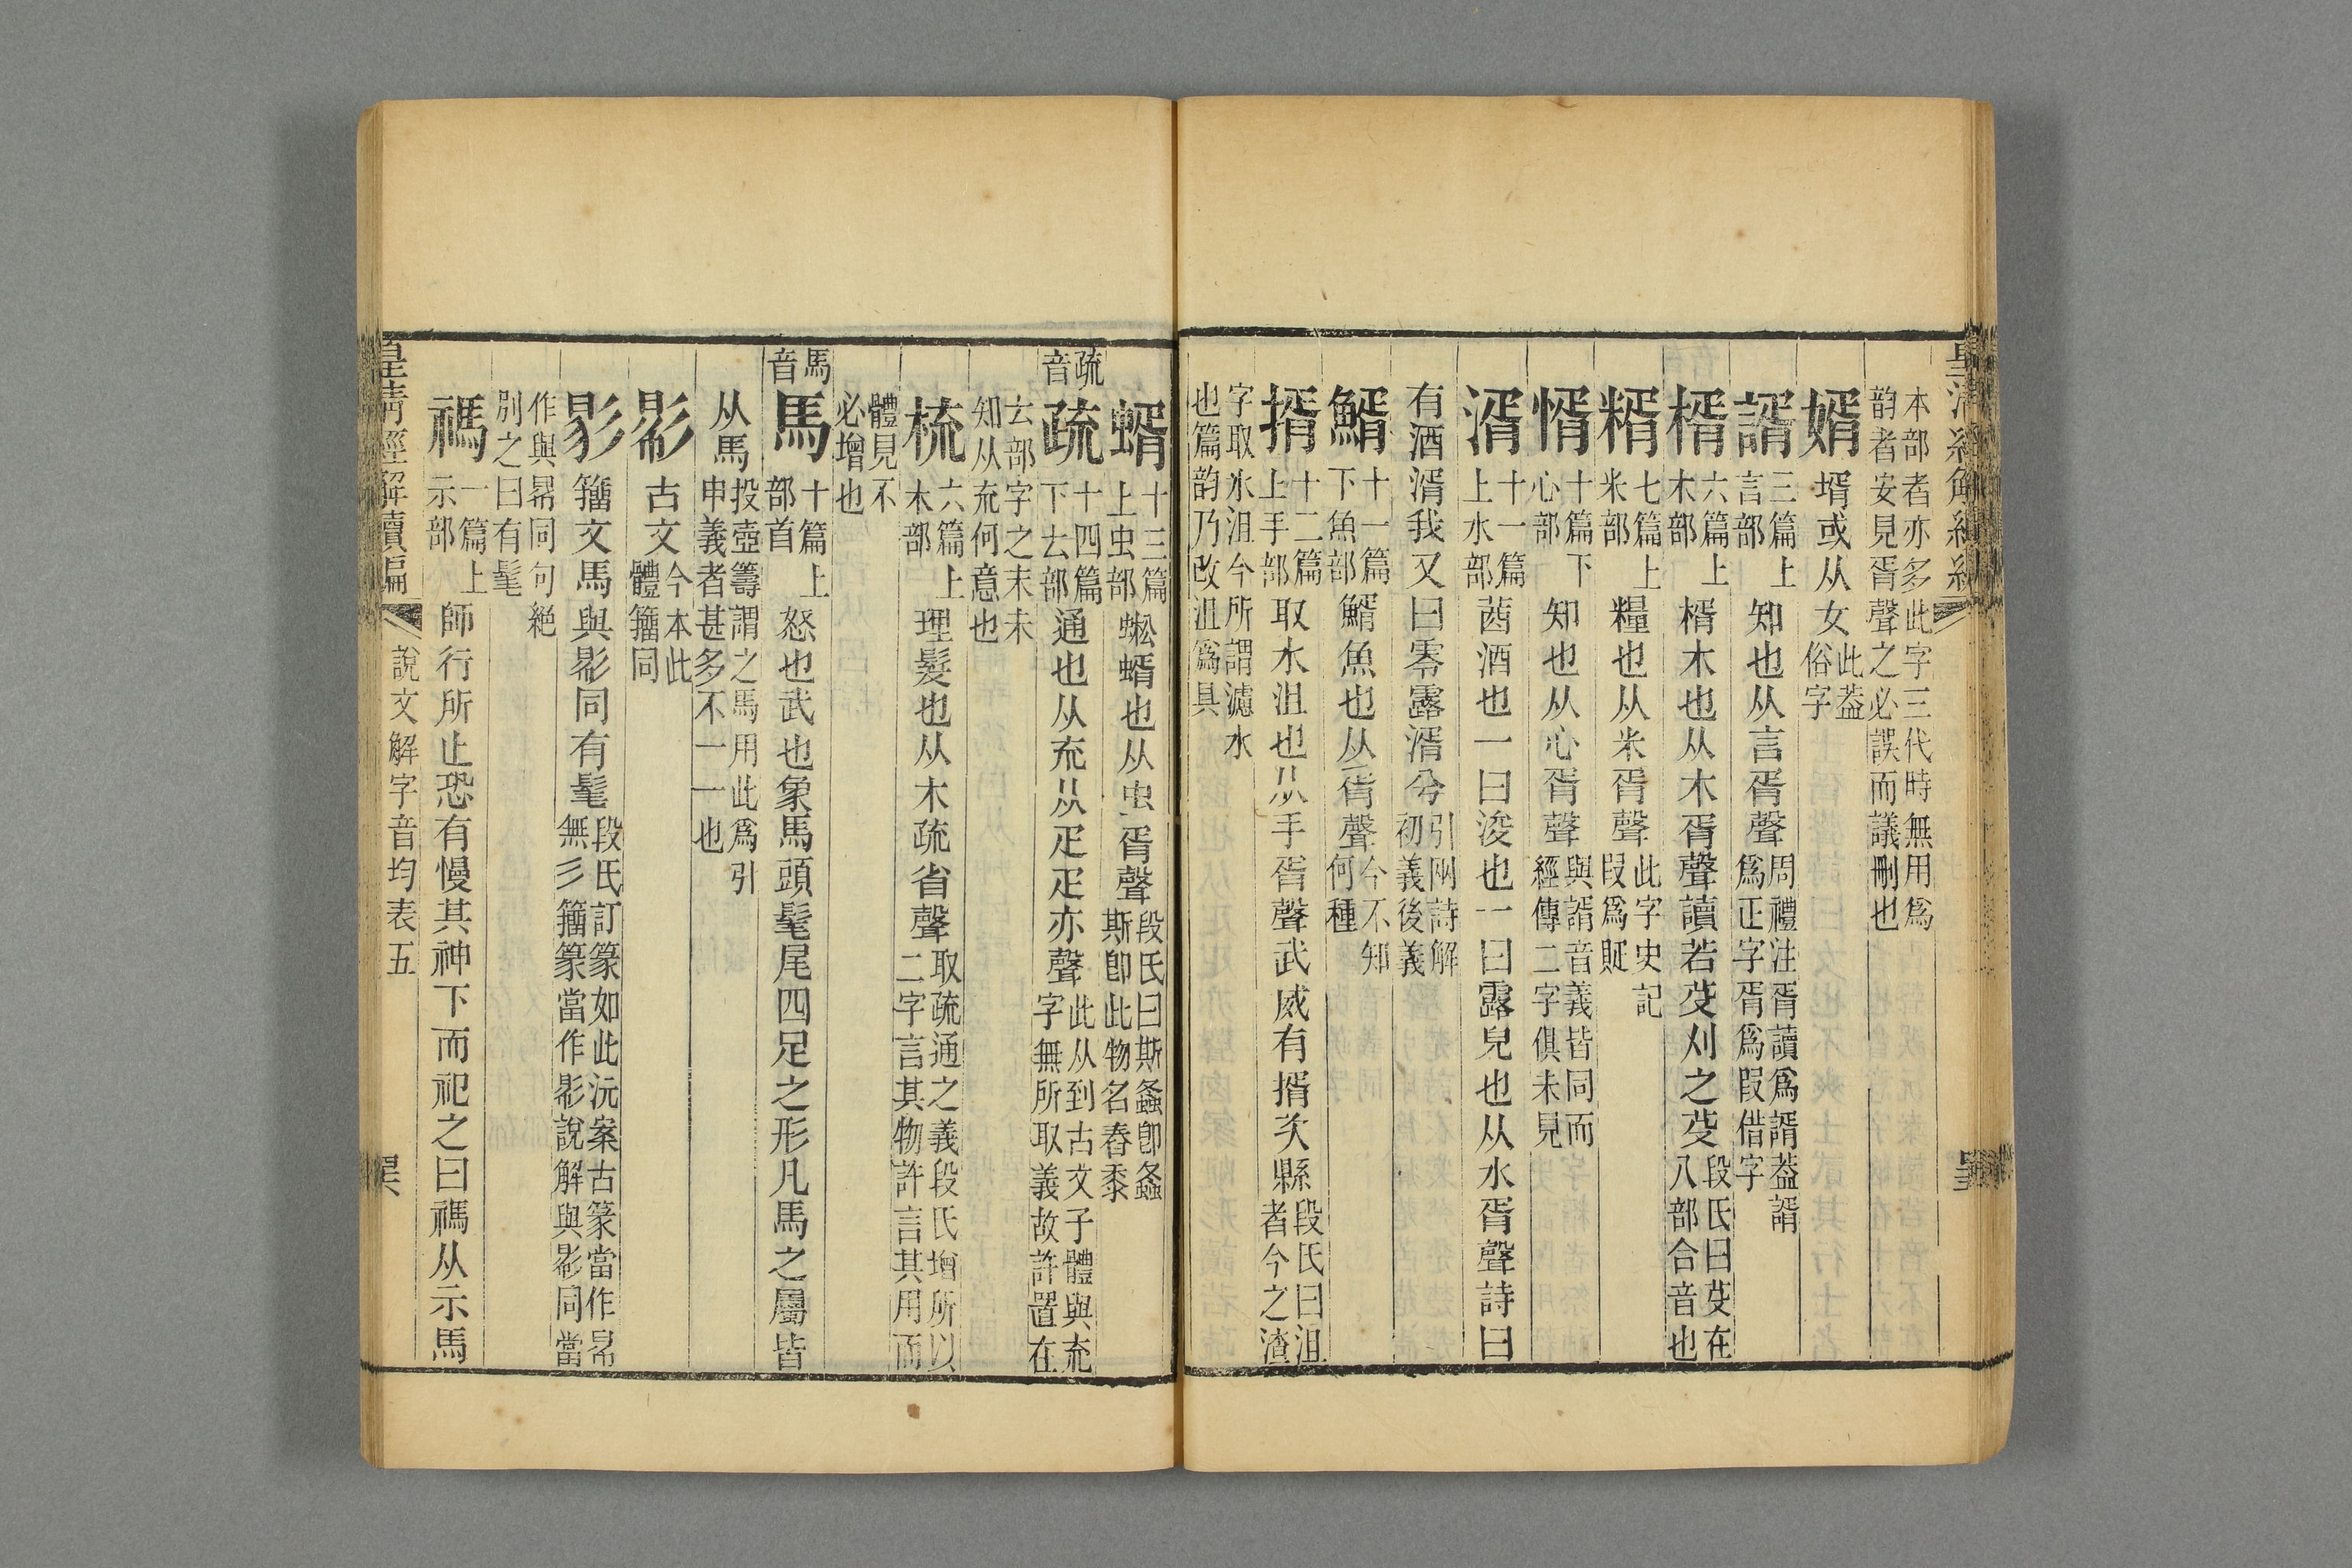 本部者亦多此字三代時無用爲
韵者安見胥聲之必誤而議刪也
婿壻或从女此葢俗字
諝三篇上言部知也从言胥聲周禮注胥讀爲諝葢諝爲正字胥爲叚借字
楈六篇上木部楈木也从木胥聲讀若芟刈之芟段氏曰芟在八部合音也
糈七篇上米部糧也从米胥聲此字史記叚爲𧸇
惰十篇下心部知也从心胥聲與諝音義皆同而經傳二字俱未見
湑十一篇上水部茜酒也一曰浚也一曰露皃也从水胥聲詩曰
有酒湑我又曰零露湑兮引兩詩解初義後義
鰖十一篇下魚部鰖魚也从魚胥聲今不知何種
揟十二篇上手部取水沮也从手胥聲武威有揟次縣段氏曰沮者今之渣
字取水沮今所謂濾水
也篇韵乃改沮爲具
蝑十三篇上虫部蜙蝑也从虫胥聲段氏曰斯螽卽螽斯卽此物名舂黍
疏音
疏十四篇下𠫓部通也从㐬从疋疋亦聲此从到古文子體與㐬字無所取義故許置在
𠫓部字之末未
知从㐬何意也
梳六篇上木部理髮也从木疏省聲取疏通之義段氏增所以二字言其物許言其用而
體見不
必增也
馬音
馬十篇上部首怒也武也象馬頭髦尾四足之形凡馬之屬皆
从馬投壺籌謂之馬用此爲引申義者甚多不一一也
影古文今本此體籒同
影籒文馬與影同有髦段氏訂篆如此沅案古篆當作㣇無彡籒篆當作影說解與影同當
作與㣇同句絶
別之曰有髦
禡一篇上示部師行所止恐有慢其神下而祀之曰禡从示馬
皇清經解續編
說文解字音均表五